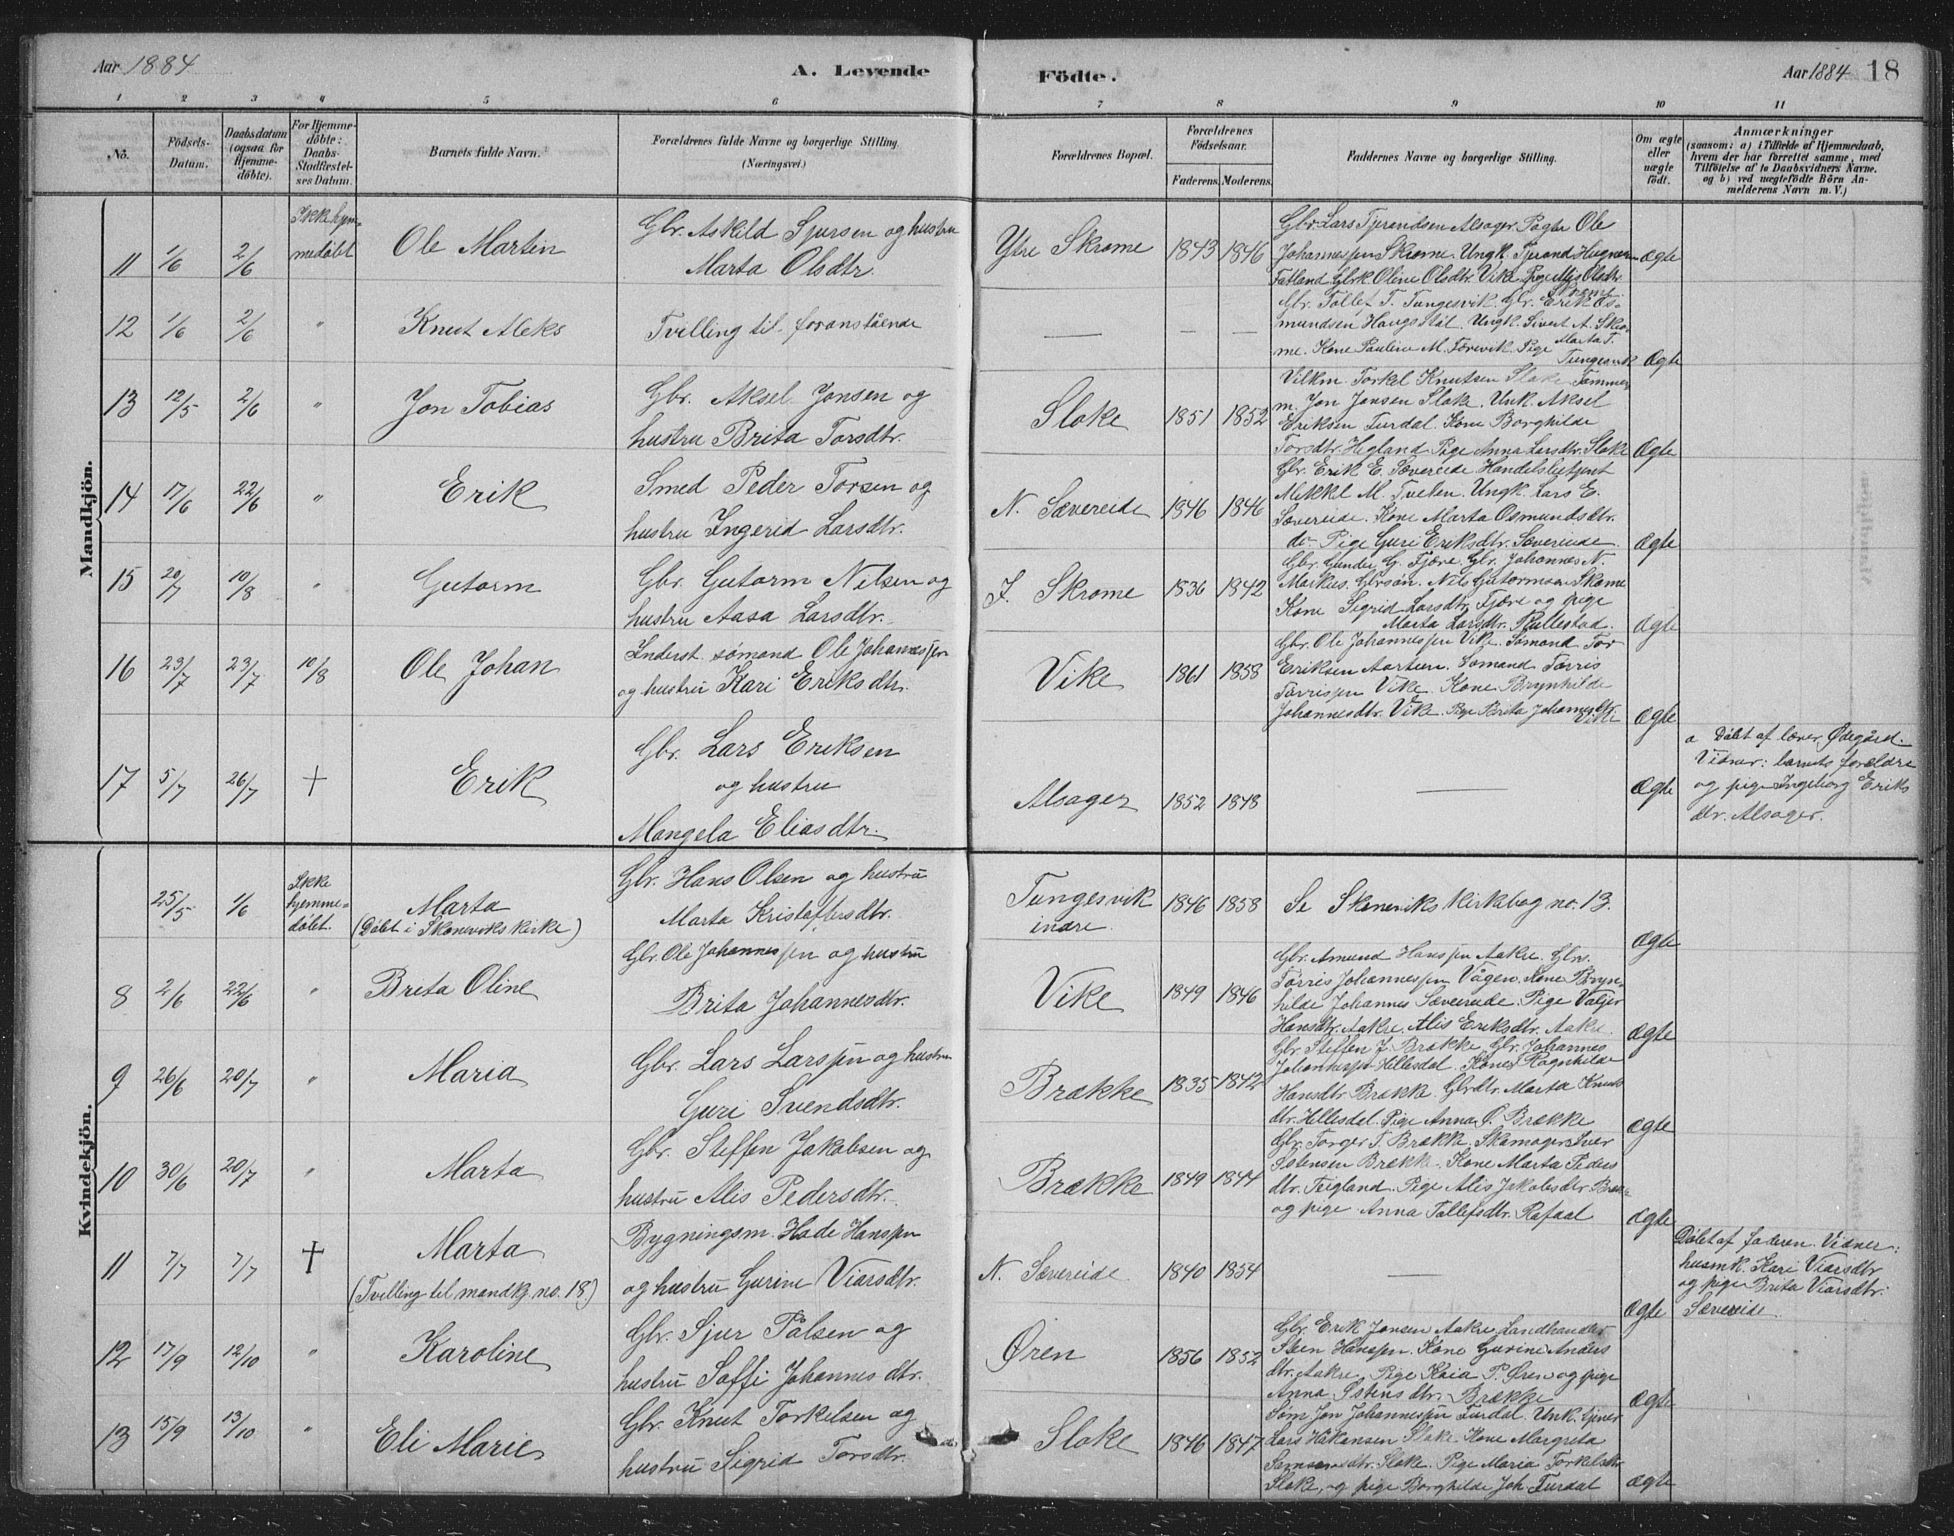 Aar 1884
A. Levende
Födte.
Aar 1884 18
1 2 3 4 5 6 7 8 9 10 11
No.
Födsels-
Datum.
Daabsdatum
(ogsaa for
Hjemme-
döbte).
For Hjemme-
döbte:
Daabs-
Stadfæstel-
ses Datum.
Barnets fulde Navn.
Forældrenes fulde Navne og borgerlige Stilling.
(Næringsvei.)
Forældrenes Bopæl.
Forældrenes
Födselsaar.
Faderens. Moderens.
Faddernes Navne og borgerlige Stilling.
Om ægte
eller
uægte
födt.
Anmærkninger
(saasom: a) i Tilfælde af Hjemmedaab,
hvem der har forrettet samme, med
Tilföielse af to Daabsvidners Navne.
og b) ved uægtefödte Börn An-
melderens Navn m. V.)
Mandkjön.
11 1/6 2/6
Ikke hjem-
medøbt
Ole Martin
Gbr. Askild Sjursen og hustru
Marta Olsdtr.
Ytre Skrome 1843 1846
Gbr. Lars Tjerandsen Alsager. Ole
Johannessen Skrome. Ungk. Tjerand
Fatland Gbrk Oline Olsdtr. Vike Pige Olsdtr.
Ægte
12 1/6 2/6 "
Knut Aleks
Tvilling til foranstående
— — —
Gbr. Tollef T. Tungesvik. Gbr. Erik Os-
mundsen Haugstøl. Ungk. Sivert A. Skro-
me. Kone Pauline M. Færevik. Pige Marta T.
Tungesvik
Ægte
13 12/5 2/6 "
Jon Tobias
Gbr. Aksel Jonsen og
hustru Brita Torsdtr.
Sloke 1851 1852
Torkel Knutsen Sloke Tømmer
m. Jon Jonsen Sloke. Unk. Aksel
Eriksen Furdal. Kone Borghilde
Torsdtr. Hegland Pige Anna Larsdtr. Sloke
Ægte
14 17/6 22/6 "
Erik
Smed Peder Torsen og
hustru Ingerid Larsdtr.
N. Sævereide 1846 1846
Gbr. Erik E. Sævereide Handelsbetjent
Mikkel M. Tveten. Ungk. Lars E.
Sævereide. Kone Marta Osmundsdtr.
do Pige Guri Eriksdtr. Sævereide.
Ægte
15 20/7 10/8 "
Gutorm
Gbr. Gutorm Nilsen og
hustru Aasa Larsdtr.
I. Skrome 1836 1842
Gbr. Gunder G. Fjære. Gbr. Johannes N.
Markus. Gbrsøn. Nils Gutormsen Skrome
Kone Sigrid Larsdtr. Fjære og pige
Marta Larsdtr. Rullestad.
Ægte
16 23/7 23/7 10/8
Ole Johan
Inderst. sømand Ole Johannessen
og hustru Kari Eriksdtr.
Vike 1861 1858
Gbr. Ole Johannessen Vike. Sømand Tor
Eriksen Aartun. Sømand Tørris
Tørrissen Vike. Kone Brynhilde
Johannesdtr. Vike. Pige Brita Johannesdtr.
Vike
Ægte
17 5/7 26/7 †
Erik
Gbr. Lars Eriksen
og hustru
Mangela Eliasdtr.
Alsager 1852 1848
—
Ægte
a Døbt af lærer Ødegård.
Vidner: barnets forældre
og pige Ingeborg Eriks
dtr. Alsager.
Kvindekjön.
25/5 1/6
Ikke
hjemme-
døbt.
Marta
(Døbt i Skoneviks kirke)
Gbr. Hans Olsen og hustru
Marta Kristoffersdtr.
Tungesvik
indre.
1846 1858
Se Skoneviks kirkebog no. 13.
Ægte
8 2/6 22/6 "
Brita Oline
Gbr. Ole Johannessen og hustru
Brita Johannesdtr.
Vike 1849 1846
Gbr. Amund Hanssen Aakre. Gbr.
Tørris Johannessen Vågen. Kone Bryn-
hilde Johannes Sævereide. Pige Valjer
Hansdtr. Aakre. Alis Eriksdtr. Aakre.
Ægte
9 26/6 20/7 "
Maria
Gbr. Lars Larssen og hustru
Guri Svendsdtr.
Brække 1835 1842
Gbr. Steffen J. Brække. Gbr. Johannes
Johannessen Hillesdal. Kone Ragnhilde
Hansdtr. Brække. Gbrdtr. Marta Knuts
dtr. Hillesdal. Pige Anna Ø. Brække
Ægte
10 30/6 20/7 "
Marta
Gbr. Steffen Jakobsen og
hustru Alis Pedersdtr.
Brække 1849 1844
Gbr. Torger T. Brække. Skomager Iver
Østensen Brække. Kone Marta Peders
dtr. Teigland. Pige Alis Jakobsdtr. Bræk-
og pige Anna Tollefsdtr. Rafaal
Ægte
11 7/7 7/7 †
Marta
(Tvilling til mandkj. no. 18.)
Bygningsm. Hade Hanssen
og hustru Gurine Viarsdtr.
N. Sævereide 1840 1854
—
Ægte
Døbt af faderen. Vidner:
husmk. Kari Viarsdtr
og pige Brita Viarsdtr.
Sævereide
12 17/9 12/10 "
Karoline
Gbr. Sjur Pålsen og
hustru Saffi Johannesdtr.
Øren 1856 1852
Gbr. Erik Jonsen Aakre. Landhandler
Steen Hanssen. Kone Gurine Anders
dtr. Aakre. Pige Kaia P. Øren og pige
Anna Østensdtr. Brække
Ægte
13 15/9 13/10 "
Eli Marie
Gbr. Knut Torkelsen og
hustru Sigrid Torsdtr.
Sloke 1846 1847
Søm. Jon Johannessen Furdal. Unk. tjener
Lars Håkonsen Sloke. Kone Margreta
Samsonsdtr. Sloke. Pige Maria Torkelsdtr.
Sloke, og pige Borghilde Joh. Furdal
Ægte